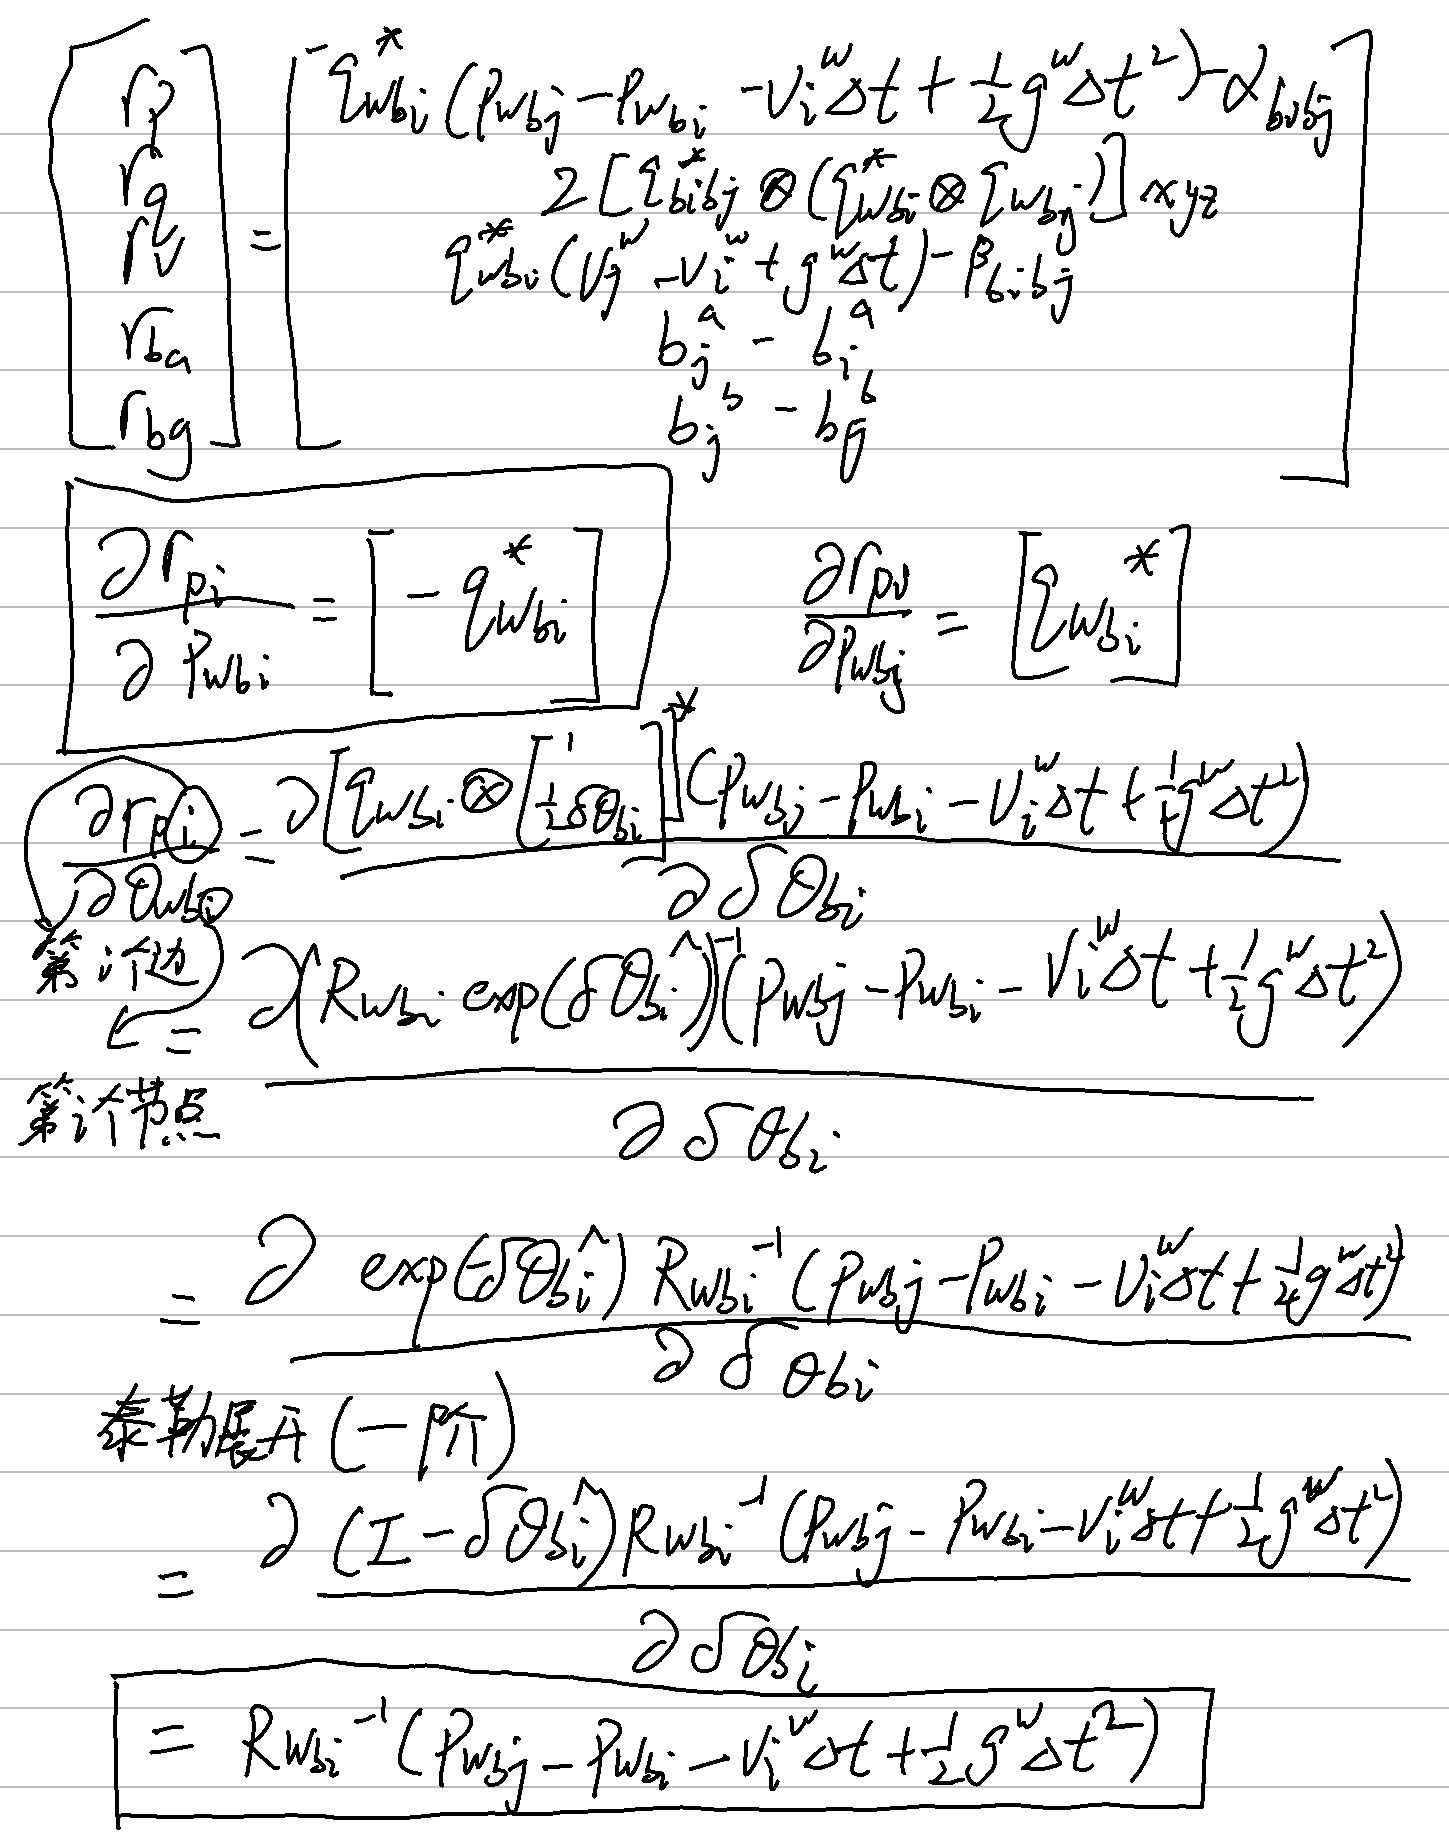 [r_p r_q r_v r_ba r_bg] = [
q*_wbi (P_wbj − P_wbi − V_i^w Δt + ½ g^w Δt²) − α_bibj
2 [q*_bibj ⊗ (q*_wbi ⊗ q_wbj)] xyz
q*_wbi (V_j^w − V_i^w + g^w Δt) − β_bibj
b_j^a − b_i^a
b_j^b − b_j^b ]
∂r_pi / ∂P_wbi = [−q*_wbi]  ∂r_pi / ∂P_wbj = [q_wbi*]
∂r_pi / ∂θ_wbi = ∂[q_wbi ⊗ [1 ½δθ_bi]]* (P_wbj − P_wbi − V_i^w Δt + ½ g^w Δt²) / ∂δθ_bi
第i个边
= ∂(R_wbi exp(δθ_bi^))^-1 (P_wbj − P_wbi − V_i^w Δt + ½ g^w Δt²) / ∂δθ_bi
第i个节点
= ∂ exp(−δθ_bi^) R_wbi^-1 (P_wbj − P_wbi − V_i^w Δt + ½ g^w Δt²) / ∂δθ_bi
泰勒展开(一阶)
= ∂ (I − δθ_bi^) R_wbi^-1 (P_wbj − P_wbi − V_i^w Δt + ½ g^w Δt²) / ∂δθ_bi
= R_wbi^-1 (P_wbj − P_wbi − V_i^w Δt + ½ g^w Δt²)